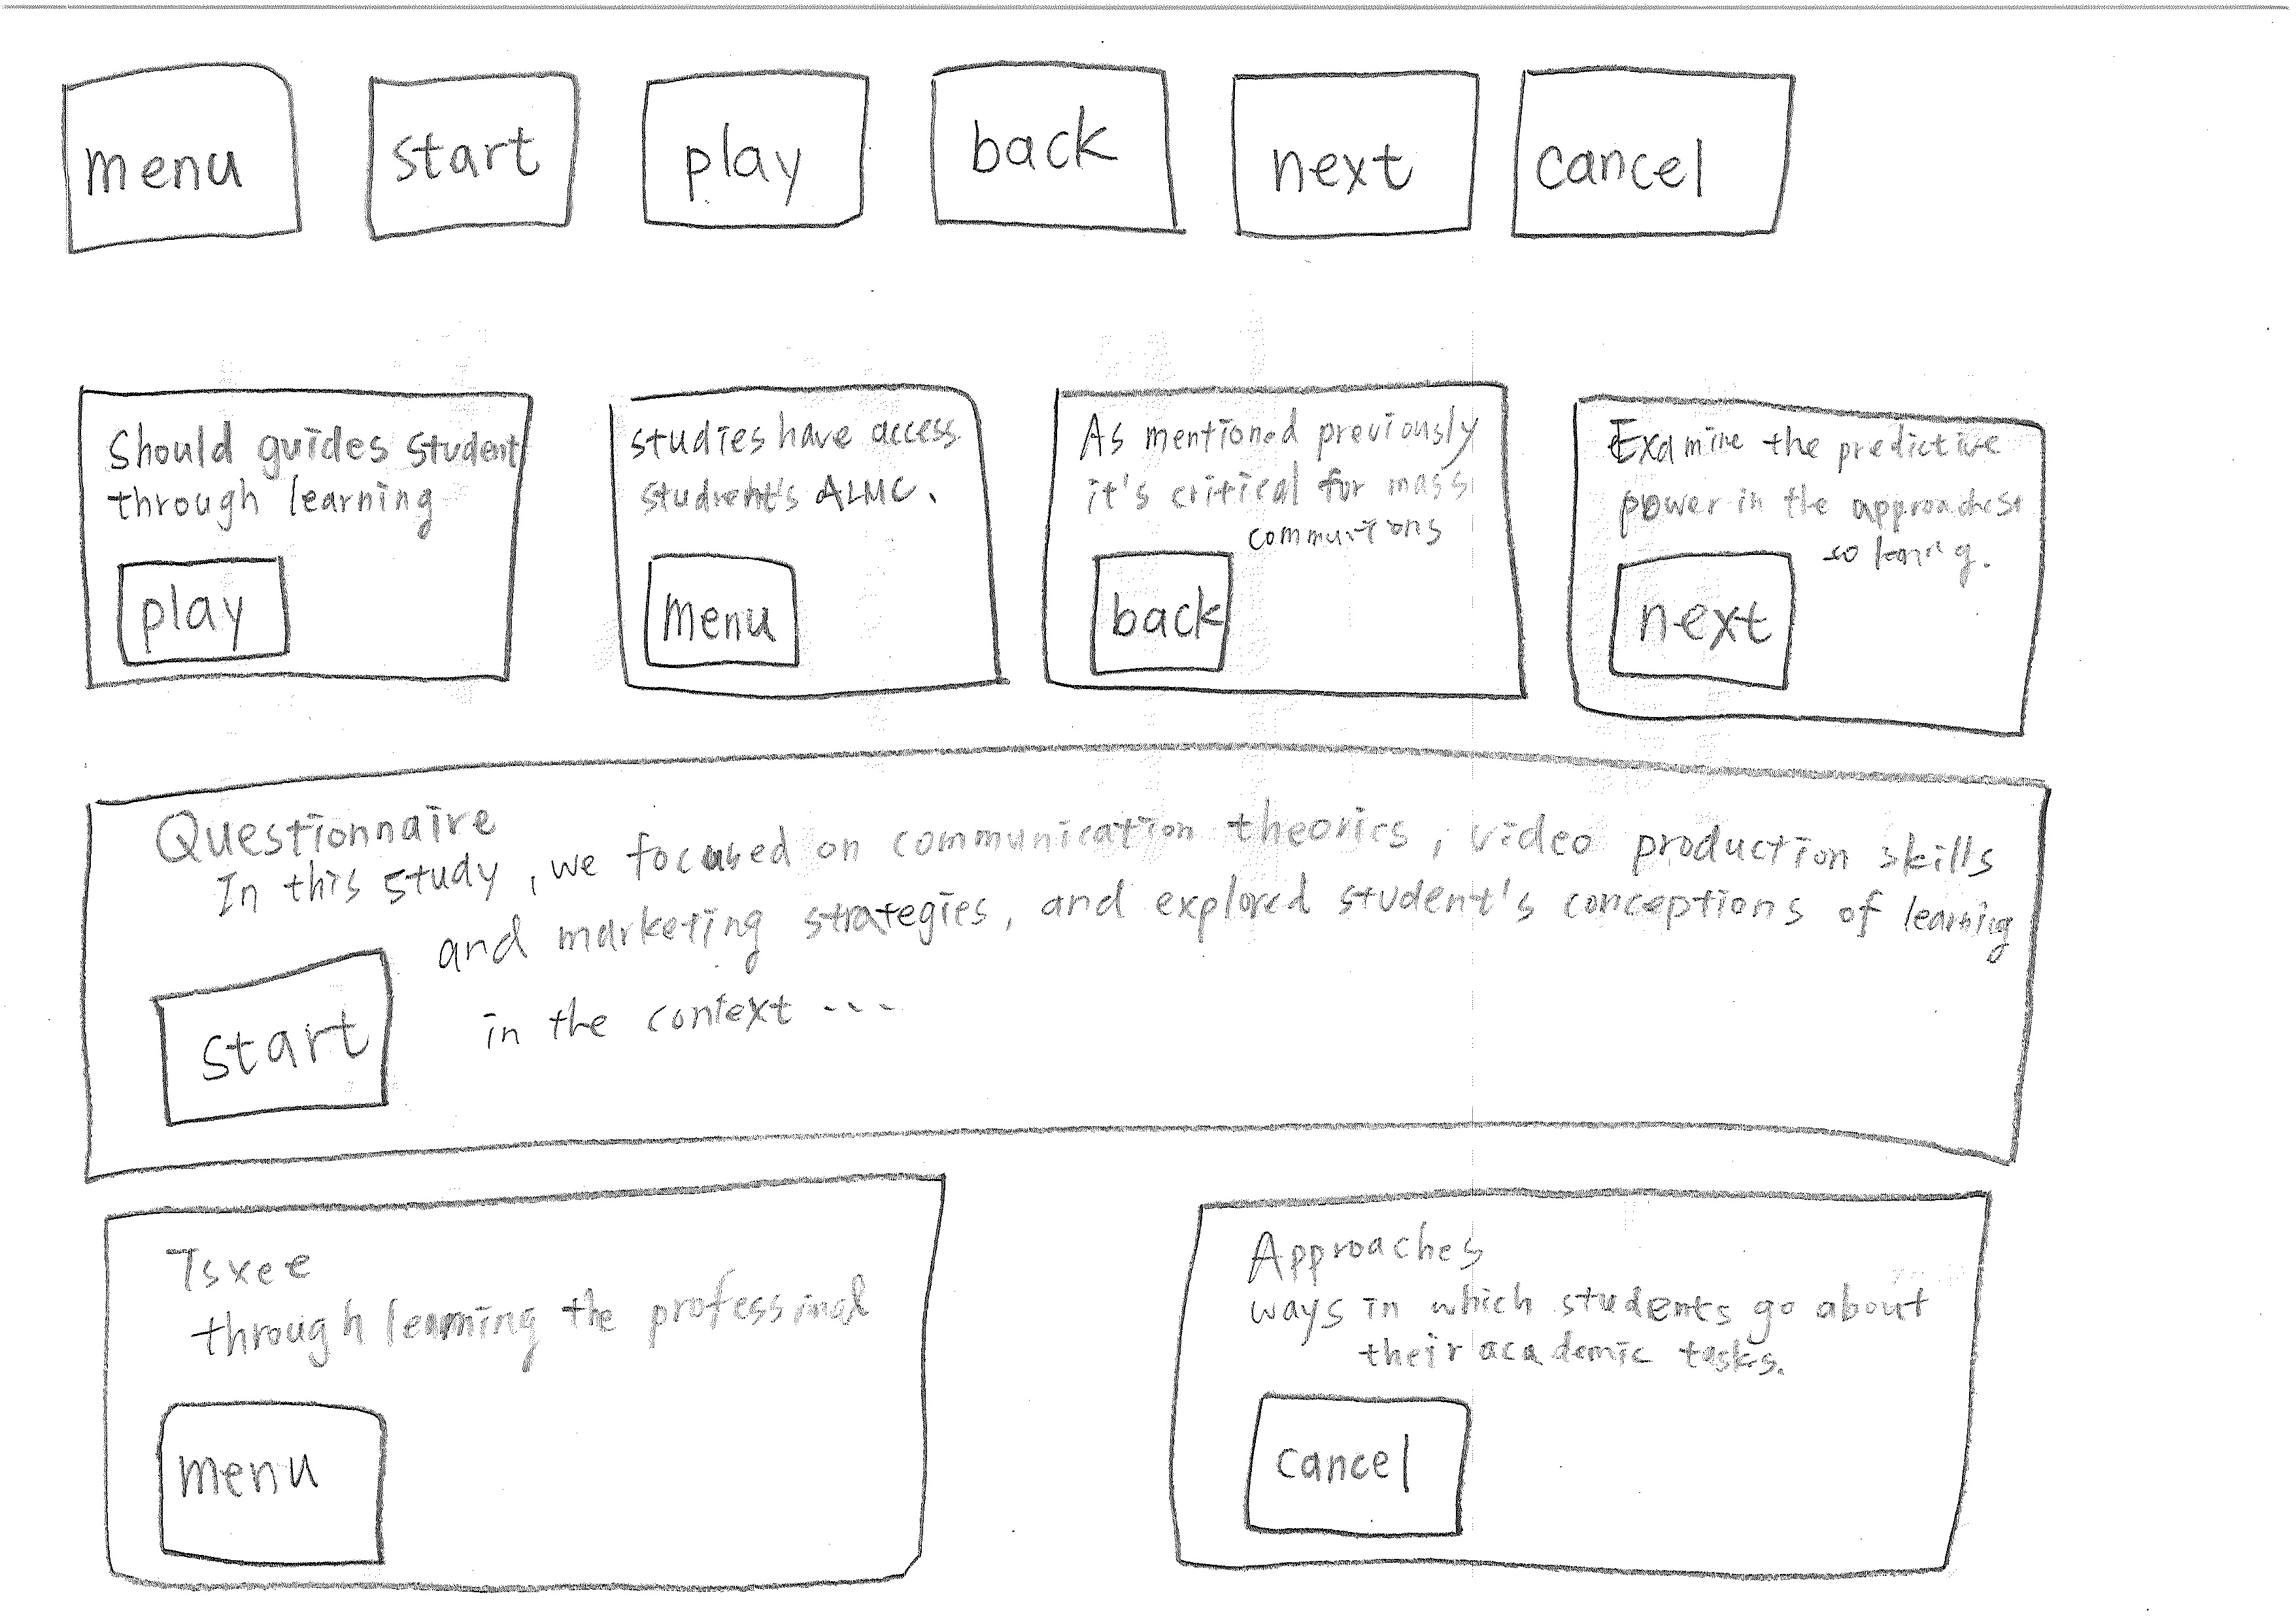 menu
start
play
back
next
cancel
Should guides student
through learning
play
studies have access
student's ALMC.
menu
As mentioned previously
it's critical for mass
back
Examine the predictive
power in the approaches
so
next
Questionnaire
In this study, we focused on communication theories, video production skills
and marketing strategies, and explored student's conceptions of learning
in the context ---
start
Tsxee
through learning the professinal
menu
Approaches
ways in which students go about
their academic tasks.
cancel